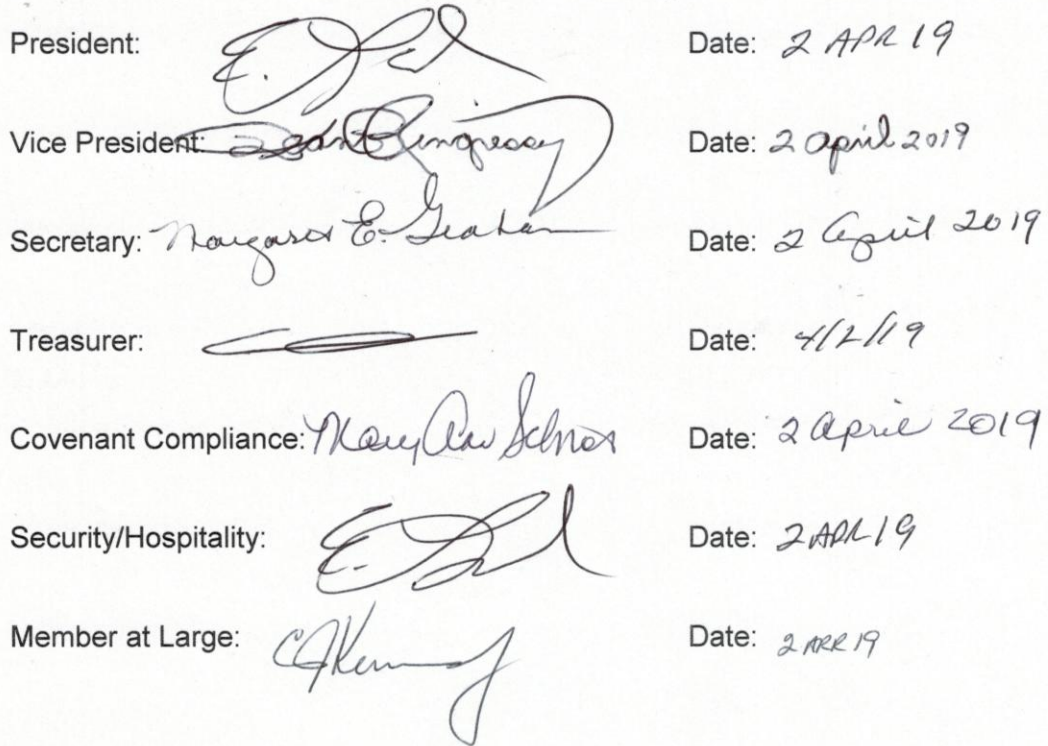 President: E. Date: 2 APR 19
Vice President: Date: 2 april 2019
Secretary: Margaret E. Graham Date: 2 April 2019
Treasurer: Date: 4/2/19
Covenant Compliance: Mary Ann Date: 2 April 2019
Security/Hospitality: E. Date: 2 APR 19
Member at Large: CJ Kennedy Date: 2 APR 19